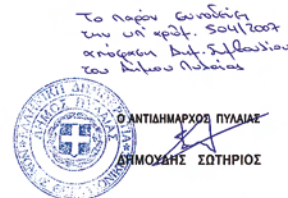 Το παρόν συνοδεύει
την υπ' αριθμ. 504/2007
απόφαση Δημ. Συμβουλίου
του Δήμου Πυλαίας
ΕΛΛΗΝΙΚΗ ΔΗΜΟΚΡΑΤΙΑ
ΔΗΜΟΣ ΠΥΛΑΙΑΣ
Ο ΑΝΤΙΔΗΜΑΡΧΟΣ ΠΥΛΑΙΑΣ
ΔΗΜΟΥΔΗΣ ΣΩΤΗΡΙΟΣ